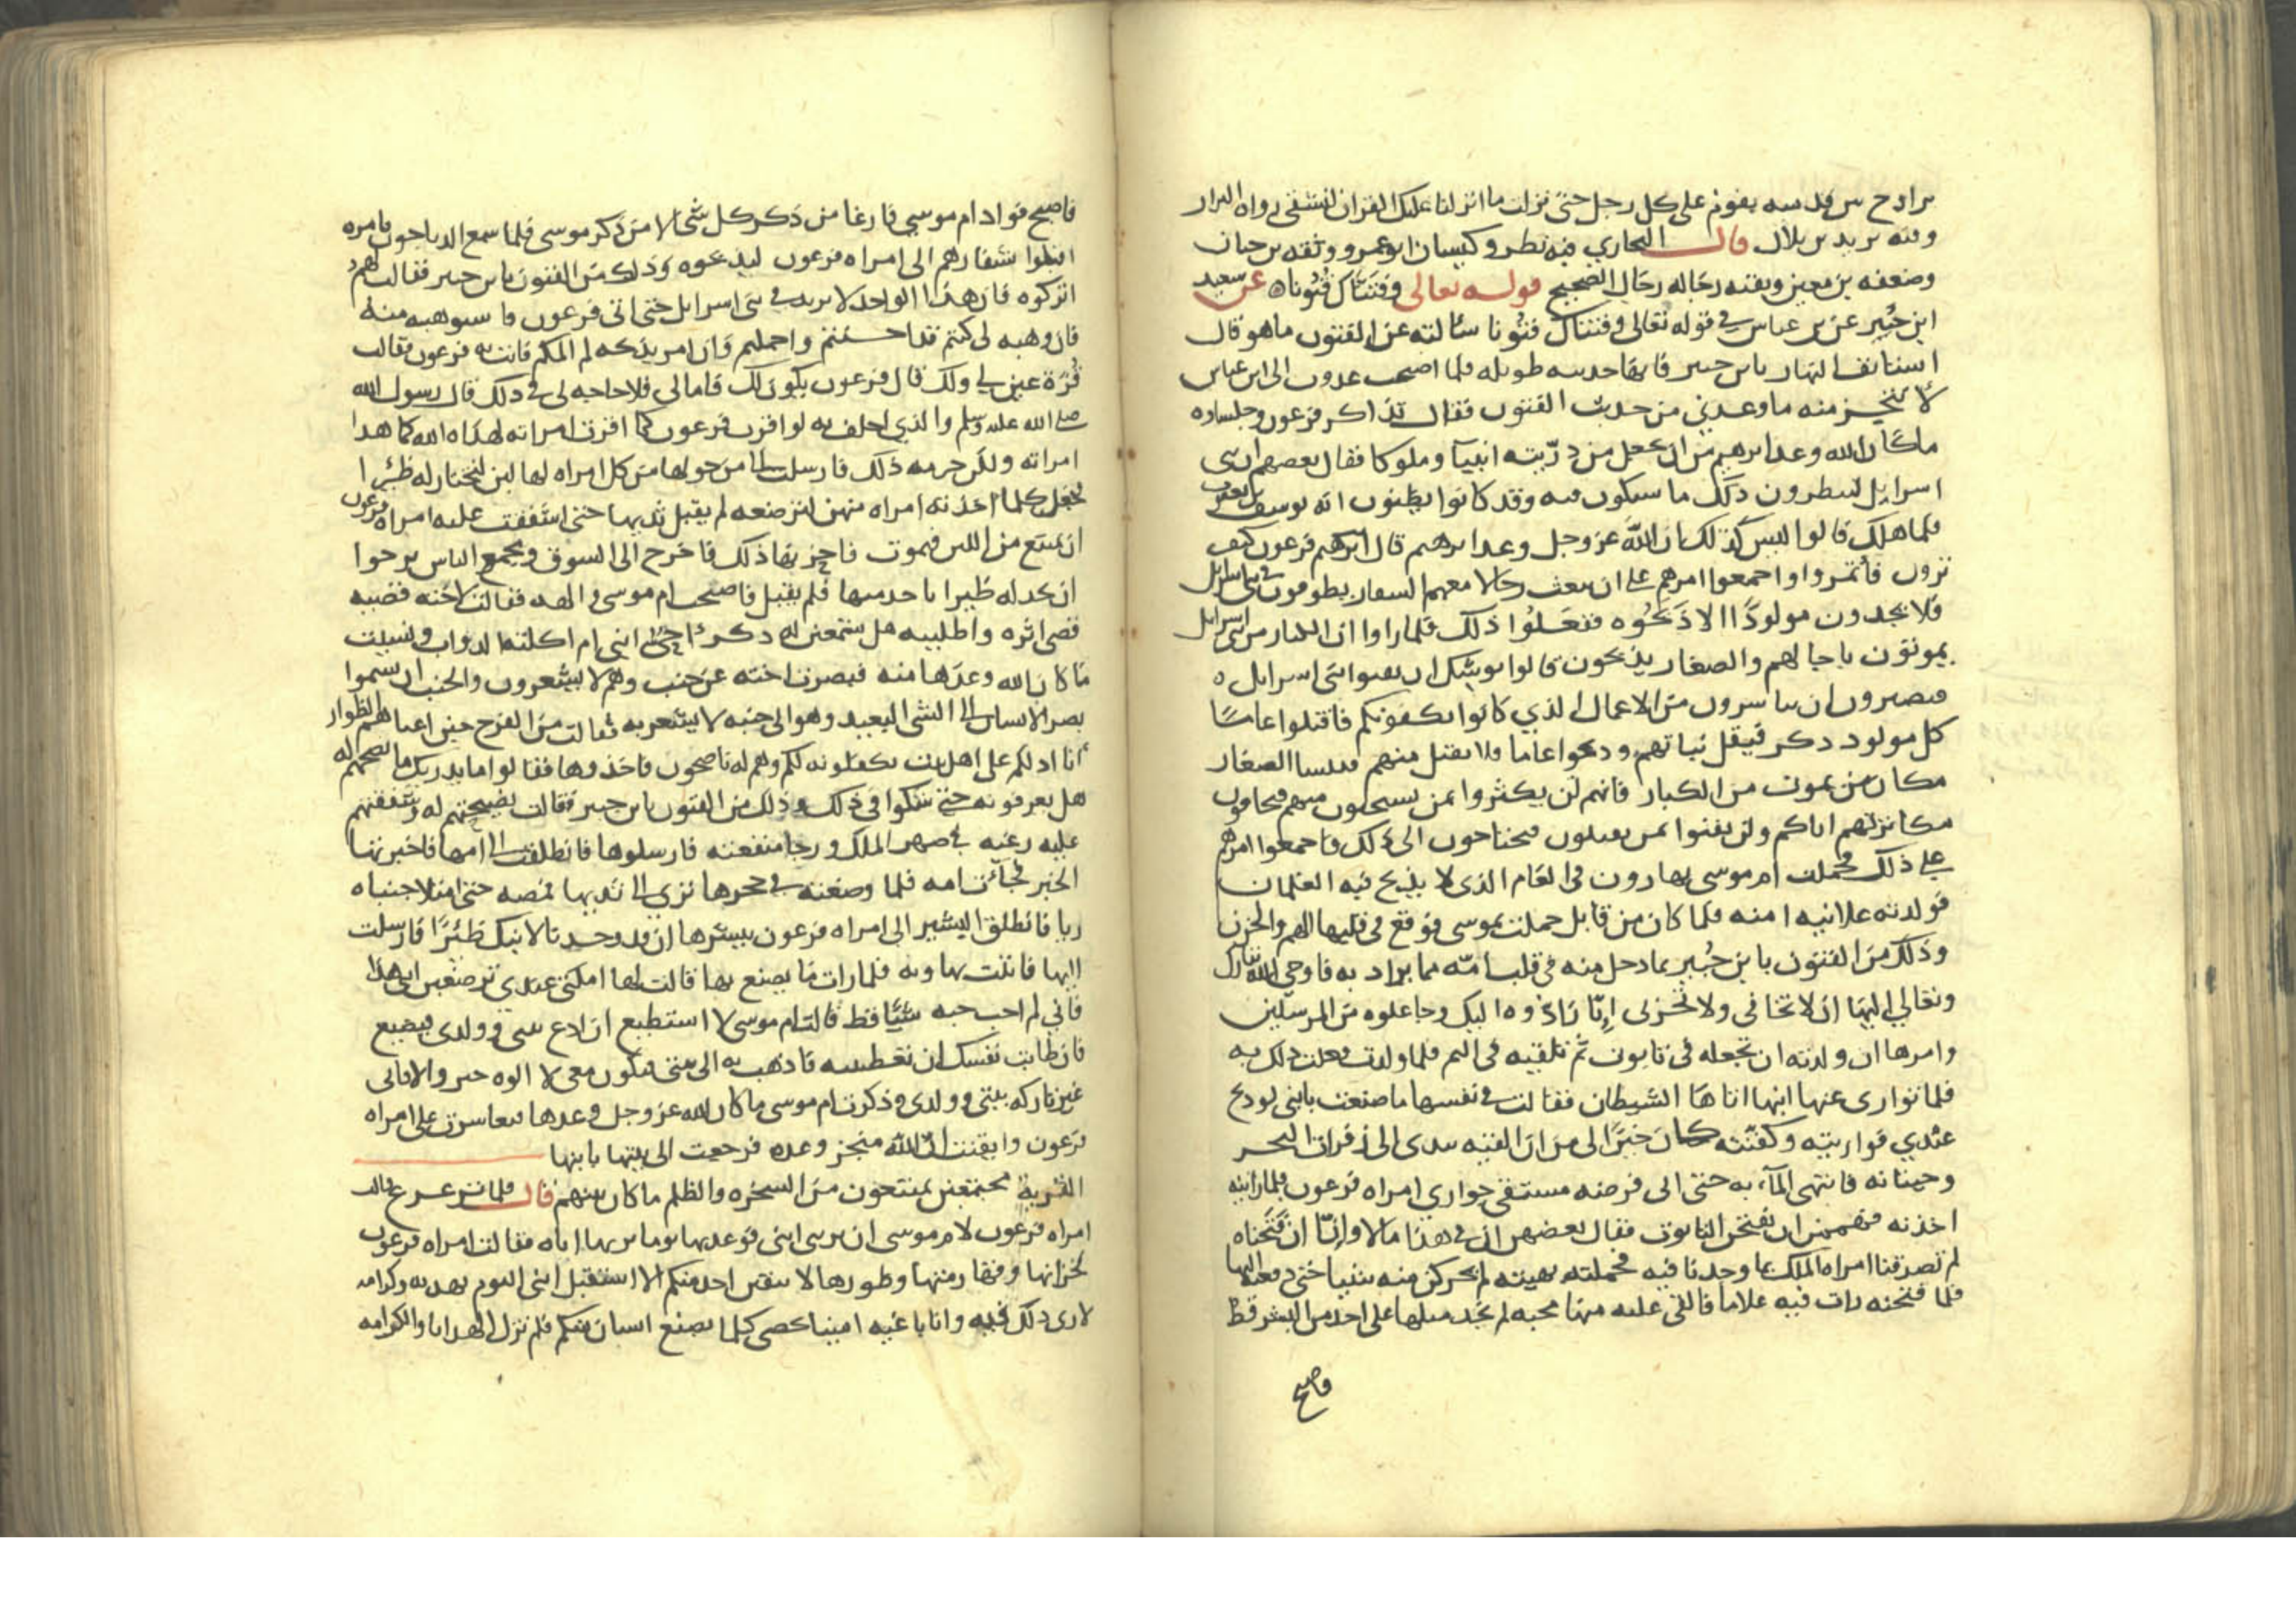 يراوح بين قدميه يقوم على كل رجل حتى نزلت ما انزلنا عليك القران لتشقى رواه البزار
وفيه يزيد بن بلال قال البخاري فيه نظر وكيسان ابو عمرو وثقه بن حبان
وضعفه بن معين وبقيه رجاله رجال الصحيح قوله تعالى وفتناك فتونا عن سعيد
ابن جبير عن بن عباس في قوله تعالى وفتناك فتونا سالته عن الفتون ما هو قال
استانف النهار يا بن جبير فان لها حديثا طويله فلما اصبحت غدوت الى ابن عباس
لانتجز منه ما وعدني من حديث الفتون فقال تذاكر فرعون وجلساوه
ما كان الله وعد ابرهيم من ان يجعل من ذريته انبيآ وملوكا فقال بعضهم ان بني
اسرايل لينتظرون ذلك ما يشكون فيه وقد كانوا يظنون انه يوسف بن يعقوب
فلما هلك قالوا ليس كذلك ان الله عز وجل وعد ابرهيم قال فرعون كيف
ترون فأتمروا واجمعوا امرهم على ان يبعث رجالا معهم الشفار يطوفون في بني اسرايل
فلا يجدون مولودا الا ذبحوه ففعلوا ذلك فلما راوا ان الكبار من بني اسرايل
يموتون باجالهم والصغار يذبحون قالوا يوشك ان يفنوا بني اسرايل
فتصيرون ان تباشرون من الاعمال الذي كانوا يكفونكم فاقتلوا عاما
كل مولود ذكر فيقل نباتهم ودعوا عاما فلا يقتل منهم الصغار
مكان من يموت من الكبار فانهم لن يكثروا بمن تستحيون منهم فتخافون
مكاثرتهم اياكم ولن يفنوا بمن يقتلون فتحتاجون الى ذلك فاجمعوا امرهم
على ذلك فحملت ام موسى بهارون في العام الذي لا يذبح فيه الغلمان
فولدته علانيه امنه فلما كان من قابل حملت بموسى فوقع في قلبها الهم والحزن
وذلك من الفتون يا بن جبير بما دخل منه في قلب امه مما يراد به فاوحى الله تبارك
وتعالى اليها ان لا تخافي ولا تحزني انا رادوه اليك وجاعلوه من المرسلين
وامرها ان ولدته ان تجعله في تابوت ثم تلقيه في اليم فلما ولدت فعلت ذلك به
فلما توارى عنها ابنها اتاها الشيطان فقالت في نفسها ما صنعت بابني لو ذبح
عندي فواريته وكفنته كان خيرا الي من ان القيه بيدي الى زفرات البحر
وحيتانه فانتهى المآء به حتى الى فرضه مستقى جواري امراه فرعون فلما راينه
اخذنه فهممن ان يفتحن التابوت فقال بعضهن ان في هذا مالا وإنا ان فتحناه
لم تصدقنا امراه الملك بما وجدنا فيه فحملنه بهيئته لم يحركن منه شيا حتى دفعنه اليها
فلما فتحته رات فيه غلاما فالقي عليه منها محبه لم تجد مثلها على احد من البشر قط
فاصبح
فاصبح فواد ام موسى فارغا من ذكر كل شئ الا من ذكر موسى فلما سمع الذباحون بامره
اقبلوا بشفارهم الى امراه فرعون ليذبحوه وذلك من الفتون يا بن جبير فقالت لهم
اتركوه فان هذا الواحد لا يزيد في بني اسرايل حتى اتي فرعون فاستوهبه منه
فان وهبه لي كنتم قد احسنتم واجملتم وان امر بذبحه لم المكم فاتت به فرعون فقالت
قرة عين لي ولك قال فرعون يكون لك فاما لي فلا حاجه لي في ذلك قال رسول الله
صلى الله عليه وسلم والذي احلف به لو اقر فرعون كما اقرت امراته لهداه الله كما هدا
امراته ولكن حرمه ذلك فارسلت الى من حولها من كل امراه لها لبن لتختار له ظئرا
فجعل كلما اخذته امراه منهن لترضعه لم يقبل ثديها حتى اشفقت عليه امراه فرعون
ان يمتنع من اللبن فيموت فاحزنها ذلك فاخرج الى السوق ومجمع الناس ترجوا
ان تجد له ظيرا ياخذ منها فلم يقبل فاصبحت ام موسى والهه فقالت لاخته قصيه
قصي اثره واطلبيه هل تسمعين له ذكرا احي ابني ام اكلته الدواب ونسيت
ما كان الله وعدها منه فبصرت اخته عن جنب وهم لا يشعرون والجنب ان يسموا
بصر الانسان الى الشي البعيد وهو الى جنبه لا يشعر به فقالت من الفرح حين اعياهم الظوار
انا ادلكم على اهل بيت يكفلونه لكم وهم له ناصحون فاخذوها فقالوا ما يدريك ما نصحهم له
هل يعرفونه حتى شكوا في ذلك وذلك من الفتون يا بن جبير فقالت نصيحتهم له وشفقتهم
عليه رغبه في صهر الملك ورجا منفعته فارسلوها فانطلقت الى امها فاخبرتها
الخبر فجآت امه فلما وضعته في حجرها نزى الى ثديها فمصه حتى امتلا جنباه
ريا فانطلق البشير الى امراه فرعون يبشرها ان قد وجدنا لابنك ظئرا فارسلت
اليها فاتت بها وبه فلما رات ما يصنع بها قالت لها امكثي عندي ترضعين ابني هذا
فاني لم احب حبه شيأ قط قالت ام موسى لا استطيع ان ادع بيتي وولدي فيضيع
فان طابت نفسك ان تعطينيه فاذهب به الى بيتي فيكون معي لا الوه خيرا والا فاني
غير تاركه بيتي وولدي وذكرت ام موسى ما كان الله عز وجل وعدها فتعاسرت على امراه
فرعون وايقنت ان الله منجز وعده فرجعت الى بيتها بابنها
القرية مجتمعين يمتنعون من السخره والظلم ما كان بينهم قال فلما ترعرع قالت
امراه فرعون لام موسى ان تريني ابني فوعدتها يوما تريها اياه فقالت امراه فرعون
لخزانها وقهارمتها وظورها لا يبقين احد منكم الا استقبل ابني اليوم بهديه وكرامه
لارى ذلك فيه وانا باعثه امينا يحصي كلما يصنع انسان منكم فلم تزل الهدايا والكرامه